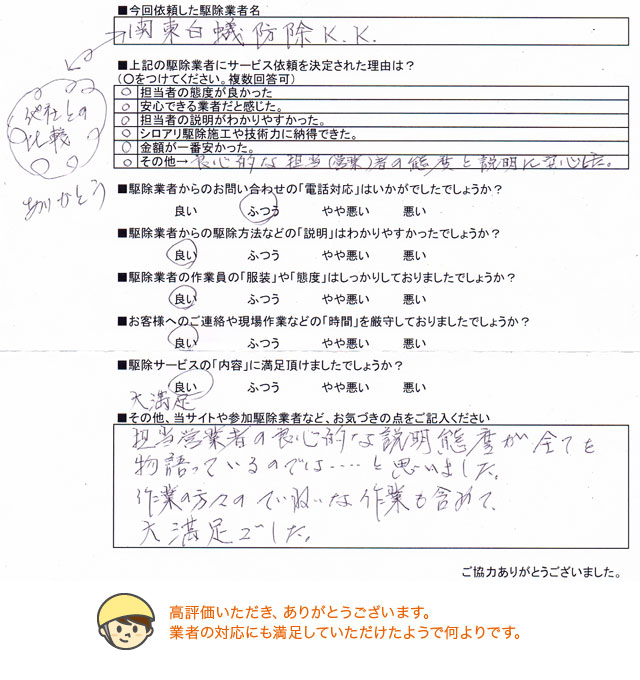 ■今回依頼した駆除業者名
関東白蟻防除K.K.
■上記の駆除業者にサービス依頼を決定された理由は?
(○をつけてください。複数回答可)
他社との
比較
ありがとう
○ 担当者の態度が良かった
○ 安心できる業者だと感じた。
○ 担当者の説明がわかりやすかった。
○ シロアリ駆除施工や技術力に納得できた。
○ 金額が一番安かった。
○ その他→ 良心的な担当(営業)者の態度と説明に安心した。
■駆除業者からのお問い合わせの「電話対応」はいかがでしたでしょうか?
良い ふつう やや悪い 悪い
■駆除業者からの駆除方法などの「説明」はわかりやすかったでしょうか?
良い ふつう やや悪い 悪い
■駆除業者の作業員の「服装」や「態度」はしっかりしておりましたでしょうか?
良い ふつう やや悪い 悪い
■お客様へのご連絡や現場作業などの「時間」を厳守しておりましたでしょうか?
良い ふつう やや悪い 悪い
■駆除サービスの「内容」に満足頂けましたでしょうか?
良い ふつう やや悪い 悪い
大満足
■その他、当サイトや参加駆除業者など、お気づきの点をご記入ください
担当営業者の良心的な説明態度が全てを
物語っているのでは……と思いました。
作業の方々のていねいな作業も含めて、
大満足でした。
ご協力ありがとうございました。
高評価いただき、ありがとうございます。
業者の対応にも満足していただけたようで何よりです。